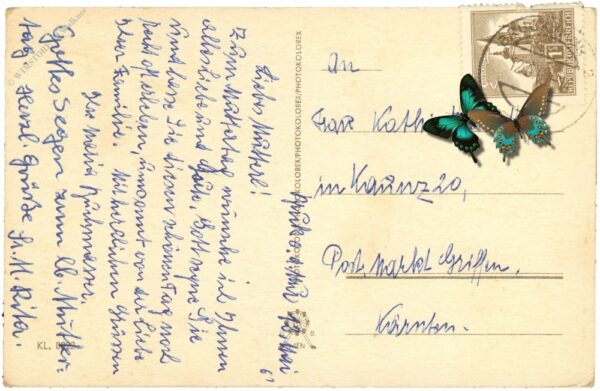 Liebes Mutterl!
Zum Muttertag wünsche ich Ihnen
alles Liebe und Gute. Gott segne Sie
und lasse Sie diesen schönen Tag noch
recht oft erleben, umsorgt von der Liebe
Ihrer Familie. Mit herzlichen Grüssen
Ihre Maria
Gottes Segen zum lb. Mutter-
tag Herzl. Grüße Sr. M. Rita.
Mai
61
PHOTOKOLOREX/PHOTOKOLOREX/PHOTOKOLOREX
KL.
An
Frau
in 20,
Post, Markt Griffen.
Kärnten.
1S
REPUBLIK ÖSTERREICH